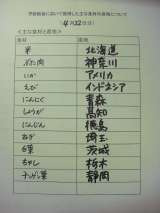 学校給食において使用した主な食材の産地について
4月22日(火)
<主な食材と産地>
食材 産地
米 北海道
ぶた肉 神奈川
いか アメリカ
えび インドネシア
にんにく 青森
しょうが 高知
にんじん 徳島
ねぎ 埼玉
白菜 茨城
もやし 栃木
チンゲン菜 静岡